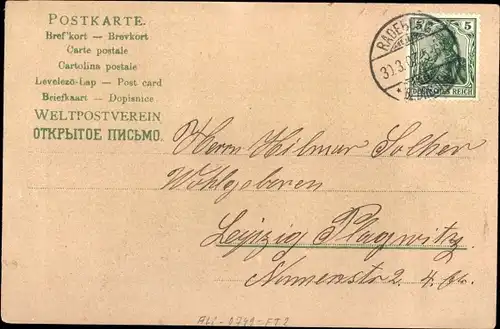 POSTKARTE.
Bref'kort — Brevkort
Carte postale
Cartolina postale
Levelező-Lap — Post card
Briefkaart — Dopisnice
WELTPOSTVEREIN
ОТКРЫТОЕ ПИСЬМО.
5
DEUTSCHES REICH
Herrn Hilmar
Wohlgeboren
Leipzig Plagwitz